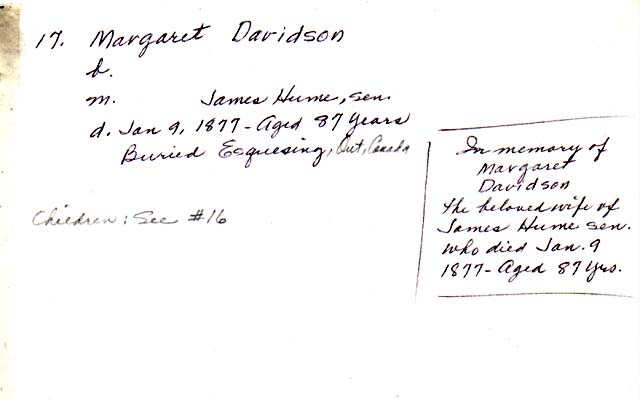 17. Margaret Davidson
b.
m. James Hume, sen.
d. Jan 9, 1877 - Aged 87 Years
Buried Esquesing, Ont, Canada
Children: See #16
In memory of
Margaret
Davidson
the beloved wife of
James Hume sen.
who died Jan. 9
1877 - Aged 87 Yrs.